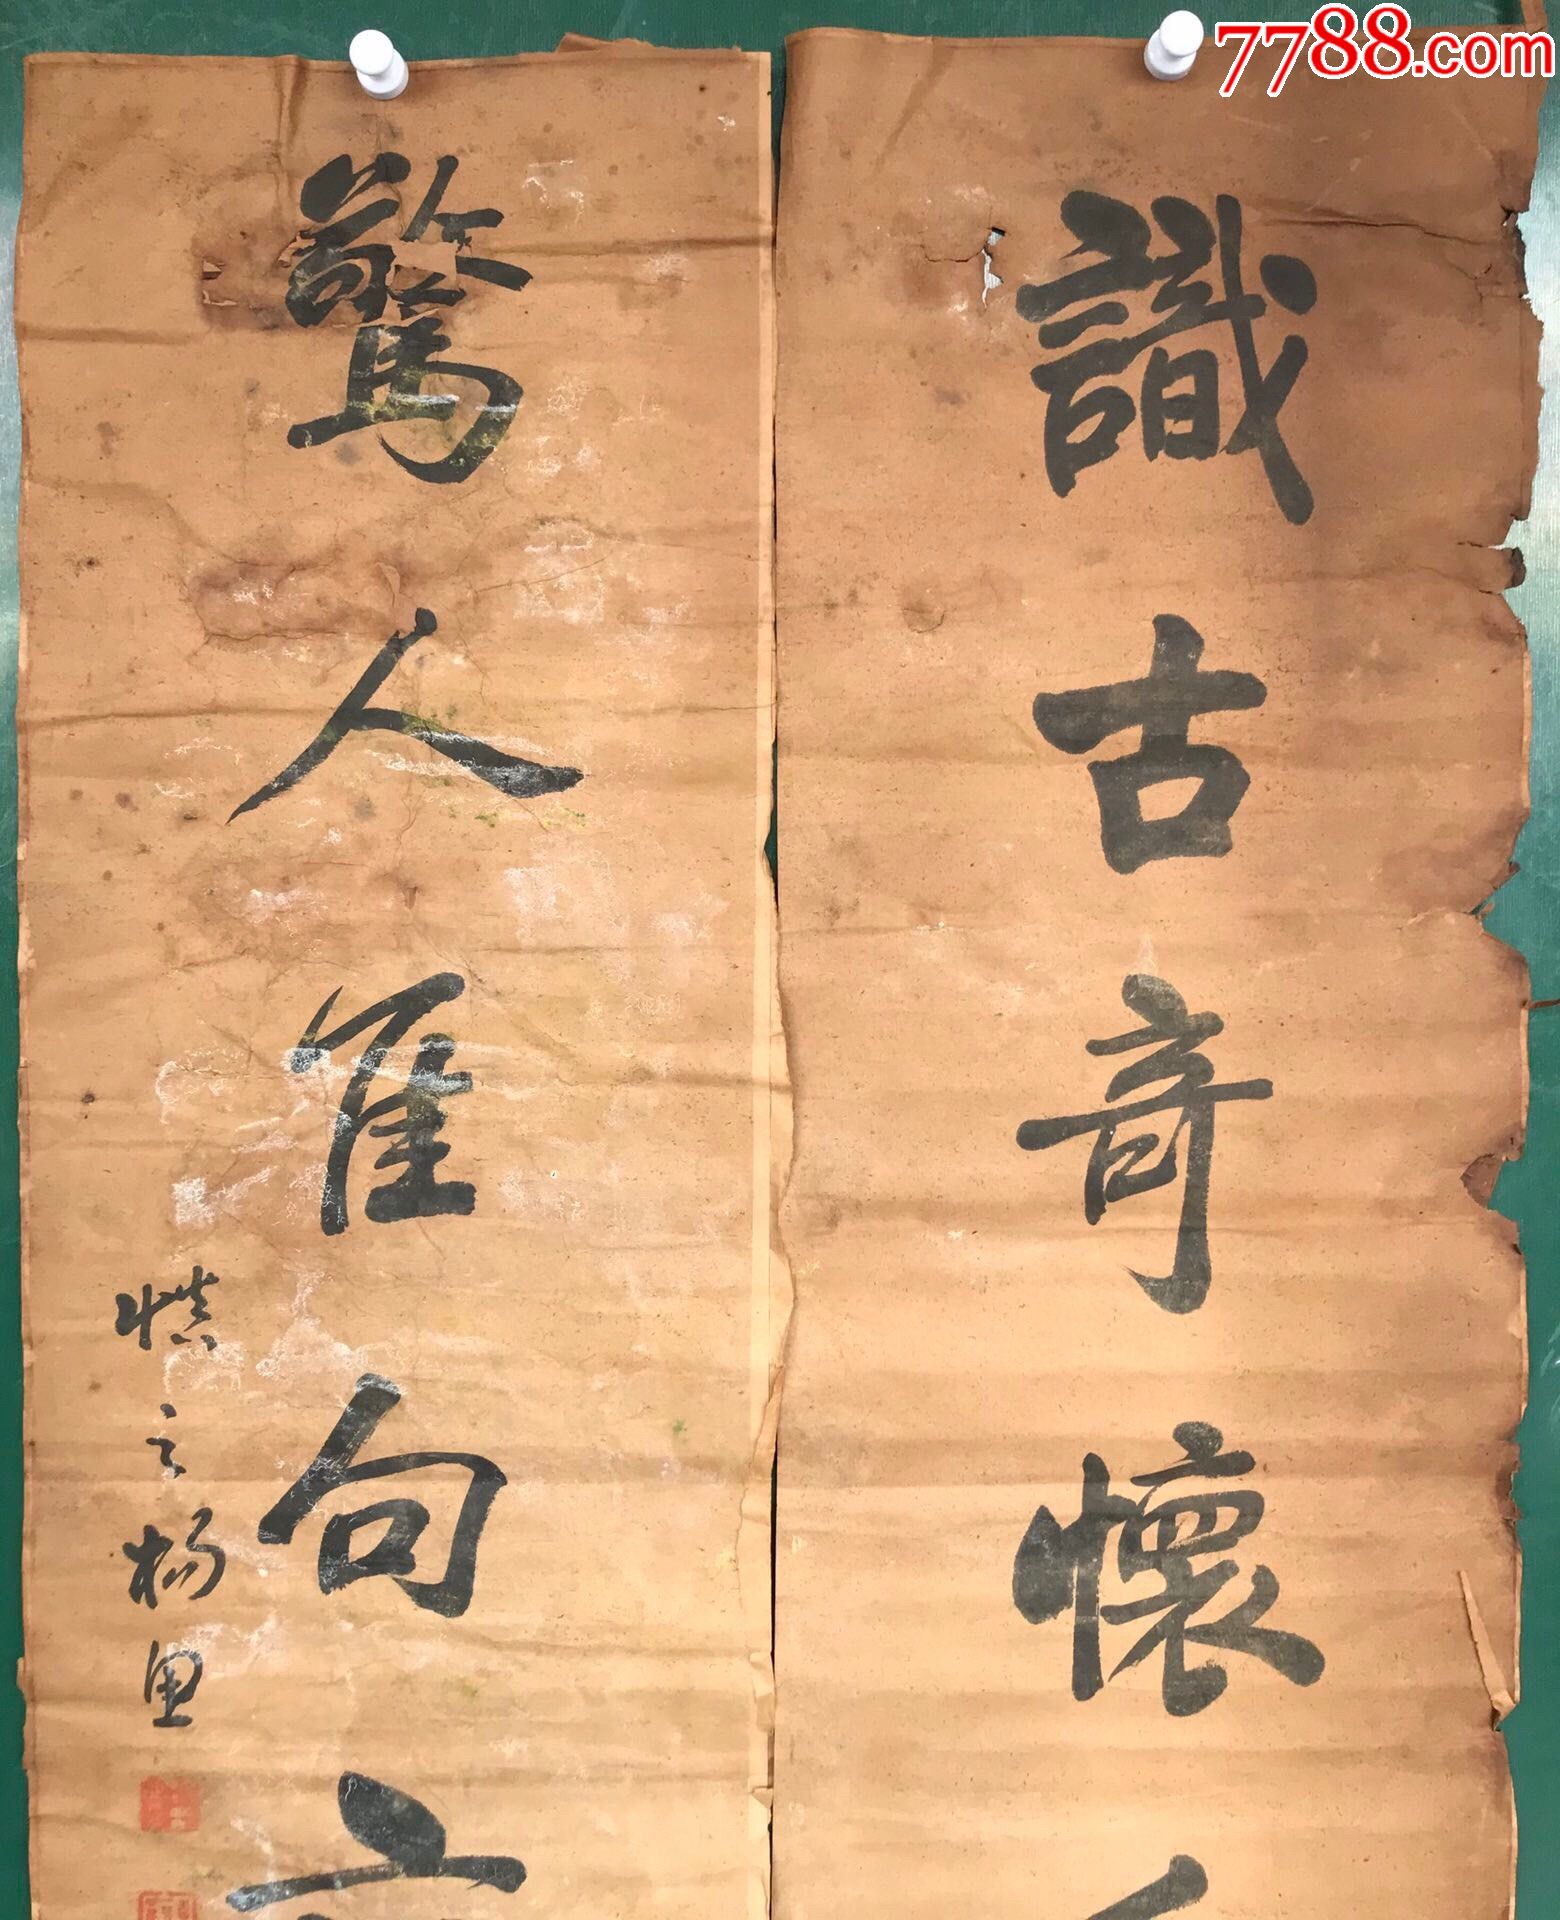 7788.com
識古奇懷
驚人佳句
慎之楊里